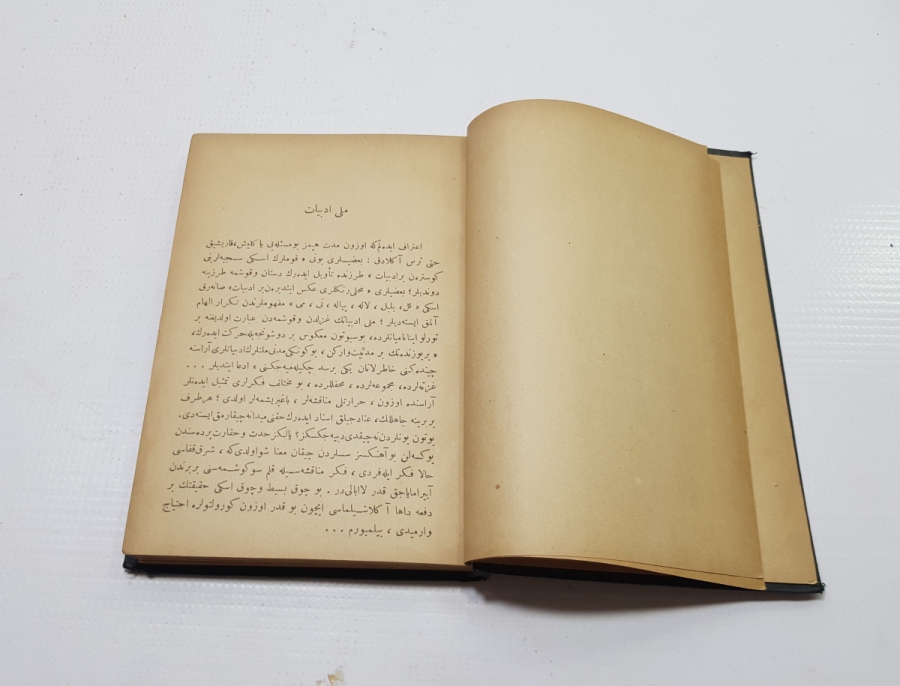 ملی ادبیات
اعتراف ایده‌لم‌که اوزون مدت هپمز بومسئله‌یی یا کلیش، قاریشیق
حتی ترس آ کلادق : بعضیلری بونی « قوملرك اسکی سجیه‌لرینی
کوسترن بر ادبیات » طرزنده تأویل ایده‌رك دستان وقوشمه طرزینه
دوندیلر ؛ بعضیلری « محلی رنکلری عکس ایتدیرن بر ادبیات» صانه‌رق
اسکی « کل، بلبل ، لاله ، پیاله ، نی ، می » مفهوملرندن تکرار الهام
آلمق ایسته‌دیلر ؛ ملی ادبیاتك غزلدن وقوشمه‌دن عبارت اولدیغنه بر
تورلو اینانامیانلرده، بوسبوتون معکوس بر دوشونجه‌یله حرکت ایده‌رك،
« بر یوزنده‌تك بر مدنیت وارکن ، بوکونکی مدنی ملتلرك ادبیاتلری آراسنه
چیننده‌کنی خاطرلاتان یکی برسد چکیله‌میه‌جکنی » ادعا ایتدیلر ...
غزته‌لرده، مجموعه‌لرده ، محفللرده ، بو مختلف فکرلری تمثیل ایده‌نلر
آراسنده اوزون ، حرارتلی مناقشه‌لر ، باغیریشمه‌لر اولدی ؛ هر طرف
بربرینه جاهللك، عنادجیلق اسناد ایده‌رك حقنی میدانه چیقارمق ایسته‌دی.
بوتون بونلردن نه چیقدی دییه‌جکسکز؟ یالکز حدت و حقارت پرده‌سندن
یوکسه‌لن بو آهنکسز سسلردن چیقان معنا شو اولدی‌که ، شرق قفاسی
حالا فکر ایله فردی ، فکر مناقشه‌سیله قلم سوکوشمه‌سنی بربرندن
آییرامایاجق قدر لاابالی‌در . بو چوق بسیط و چوق اسکی حقیقتك بر
دفعه داها آ کلاشیلماسی ایچون بو قدر اوزون کورولتولره احتیاج
وارمیدی ، بیلمیورم ...